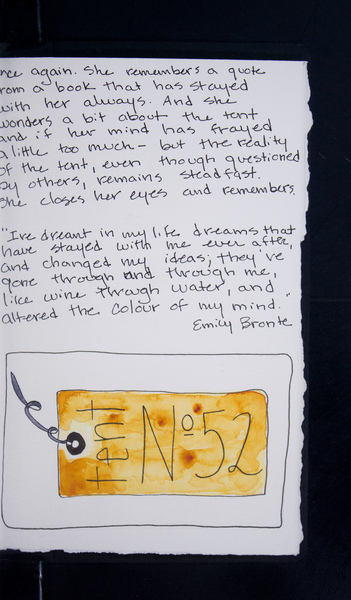 nce again. She remembers a quote
rom a book that has stayed
with her always. And she
wonders a bit about the tent
and if her mind has frayed
a little too much - but the reality
of the tent, even though questioned
by others, remains steadfast.
She closes her eyes and remembers.
"I've dreamt in my life dreams that
have stayed with me ever after,
and changed my ideas; they've
gone through and through me,
like wine through water, and
altered the colour of my mind."
Emily Bronte
tent
Nº 52